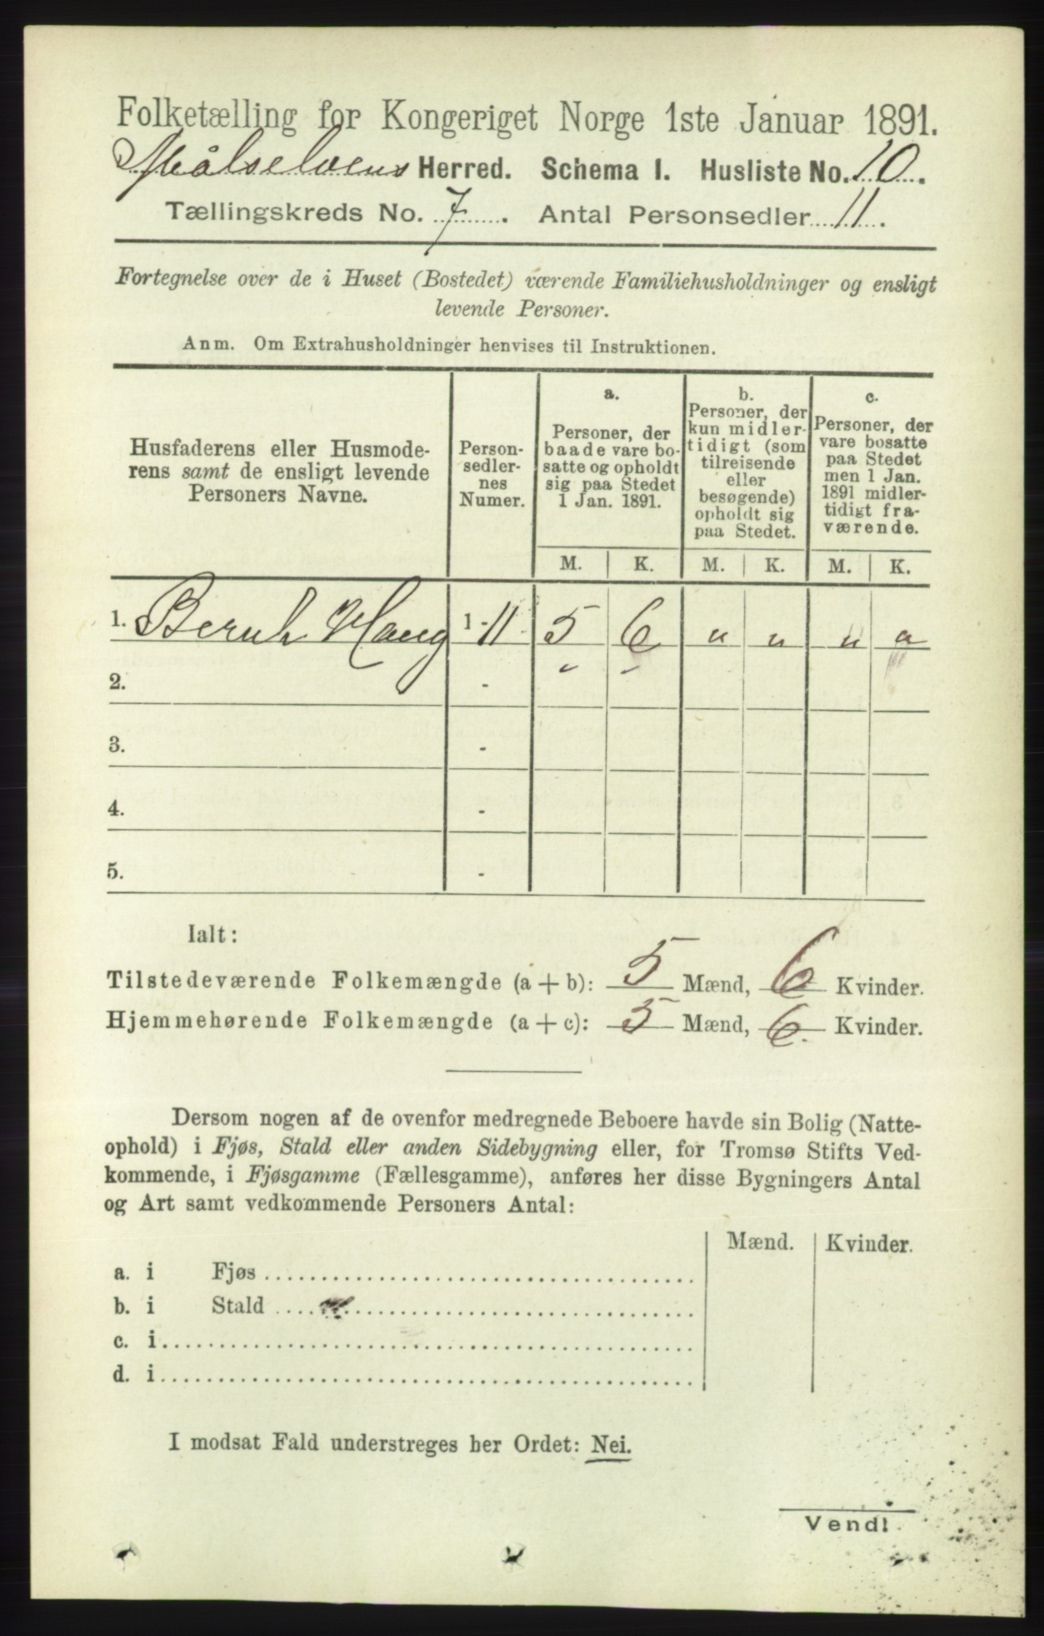 Folketælling for Kongeriget Norge 1ste Januar 1891.
Målselvens Herred. Schema I. Husliste No. 10.
Tællingskreds No. 7. Antal Personsedler 11.
Fortegnelse over de i Huset (Bostedet) værende Familiehusholdninger og ensligt
levende Personer.
Anm. Om Extrahusholdninger henvises til Instruktionen.
Husfaderens eller Husmode-
rens samt de ensligt levende
Personers Navne.
Person-
sedler-
nes
Numer.
a.
Personer, der
baade vare bo-
satte og opholdt
sig paa Stedet
1 Jan. 1891.
b.
Personer, der
kun midler-
tidigt (som
tilreisende
eller
besøgende)
opholdt sig
paa Stedet.
c.
Personer, der
vare bosatte
paa Stedet
men 1 Jan.
1891 midler-
tidigt fra-
værende.
M. K. M. K. M. K.
1. Bernh Haug 1-11 5 6 " " " "
2. -
3. -
4. -
5. -
Ialt:
Tilstedeværende Folkemængde (a + b): 5 Mænd, 6 Kvinder.
Hjemmehørende Folkemængde (a + c): 5 Mænd, 6 Kvinder.
Dersom nogen af de ovenfor medregnede Beboere havde sin Bolig (Natte-
ophold) i Fjøs, Stald eller anden Sidebygning eller, for Tromsø Stifts Ved-
kommende, i Fjøsgamme (Fællesgamme), anføres her disse Bygningers Antal
og Art samt vedkommende Personers Antal:
Mænd. Kvinder.
a. i Fjøs
b. i Stald
c. i
d. i
I modsat Fald understreges her Ordet: Nei.
Vend!